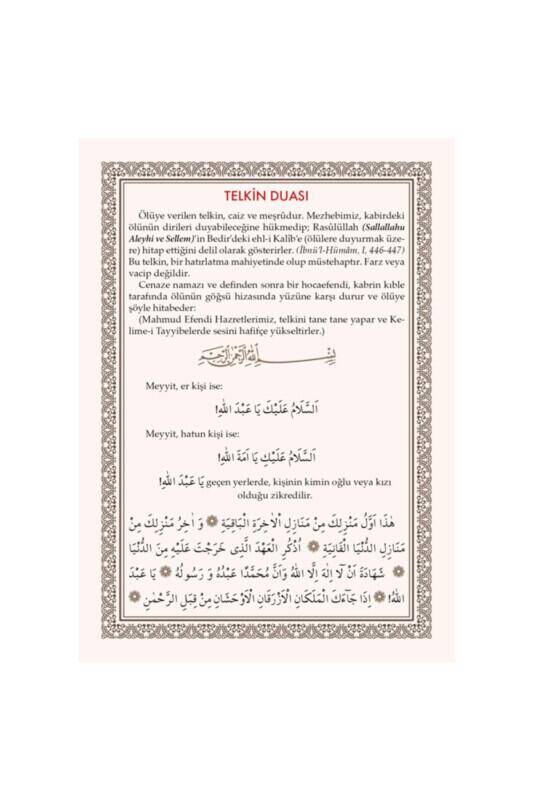 TELKİN DUASI
Ölüye verilen telkin, caiz ve meşrûdur. Mezhebimiz, kabirdeki
ölünün dirileri duyabileceğine hükmedip; Rasûlüllah (Sallallahu
Aleyhi ve Sellem)'in Bedir'deki ehl-i Kalîb'e (ölülere duyurmak üze-
re) hitap ettiğini delil olarak gösterirler. (İbnü'l-Hümâm, I, 446-447)
Bu telkin, bir hatırlatma mahiyetinde olup müstehaptır. Farz veya
vacip değildir.
Cenaze namazı ve definden sonra bir hocaefendi, kabrin kıble
tarafında ölünün göğsü hizasında yüzüne karşı durur ve ölüye
şöyle hitabeder:
(Mahmud Efendi Hazretlerimiz, telkini tane tane yapar ve Ke-
lime-i Tayyibelerde sesini hafifçe yükseltirler.)
بِسْمِ اللهِ الرَّحْمٰنِ الرَّحِيمِ
Meyyit, er kişi ise:
اَلسَّلَامُ عَلَيْكَ يَا عَبْدَ اللهِ!
Meyyit, hatun kişi ise:
اَلسَّلَامُ عَلَيْكِ يَا اَمَةَ اللهِ!
يَا عَبْدَ اللهِ! geçen yerlerde, kişinin kimin oğlu veya kızı
olduğu zikredilir.
هٰذَا اَوَّلُ مَنْزِلِكَ مِنْ مَنَازِلِ الْاٰخِرَةِ الْبَاقِيَةِ ۞ وَ اٰخِرُ مَنْزِلِكَ مِنْ
مَنَازِلِ الدُّنْيَا الْفَانِيَةِ ۞ اُذْكُرِ الْعَهْدَ الَّذِى خَرَجْتَ عَلَيْهِ مِنَ الدُّنْيَا
۞ شَهَادَةَ اَنْ لَا اِلٰهَ اِلَّا اللهُ وَاَنَّ مُحَمَّدًا عَبْدُهُ وَ رَسُولُهُ ۞ يَا عَبْدَ
اللهِ! ۞ اِذَا جَاءَكَ الْمَلَكَانِ الْاَزْرَقَانِ الْاَوْحَشَانِ مِنْ قِبَلِ الرَّحْمٰنِ ۞